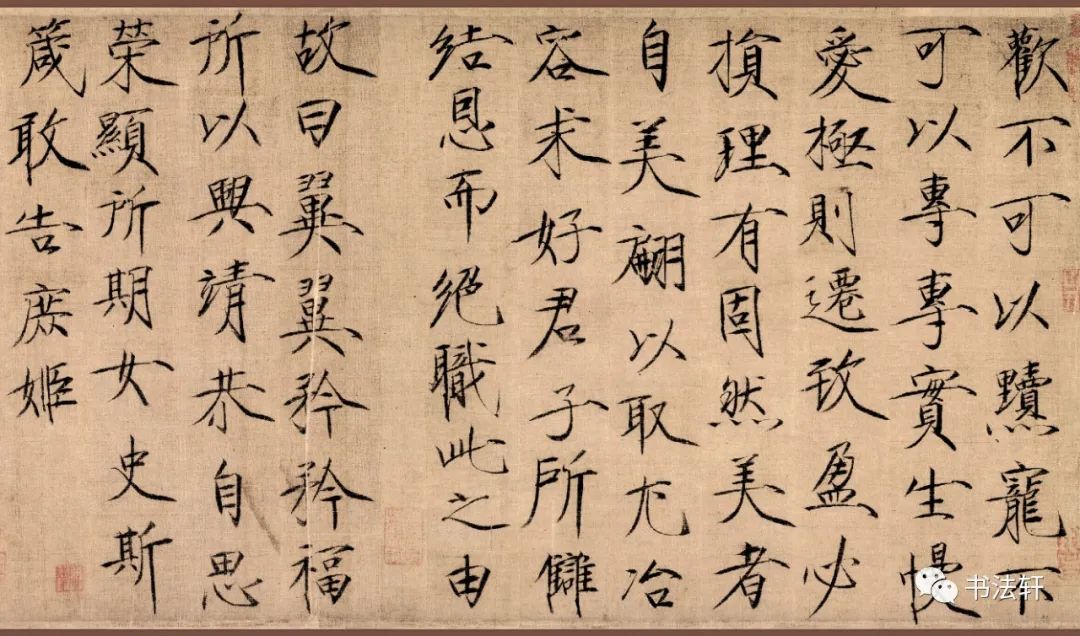 歡不可以黷寵不
可以專專實生慢
愛極則遷致盈必
損理有固然美者
自美翩以取尤冶
容求好君子所讎
結恩而絕職此之由
故曰翼翼矜矜福
所以興靖恭自思
榮顯所期女史斯
箴敢告庶姬
书法轩